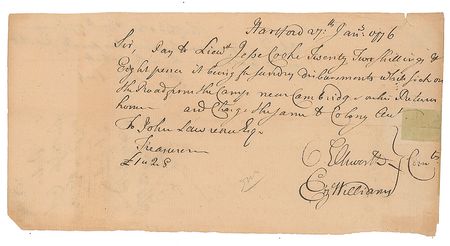 Hartford 27th Janr 1776
Sir, Pay to Lieut Jesse Cooke Twenty Two shillings &
Eight pence it being for sundry disbursements while sick on
the Road from the Camp near Cambridge on his Return
home and Charge the same to Colony Acct
To John Lawrence Esqr
Treasurer
£1 "2 "8
O Ellsworth
Ez Williams
Comte